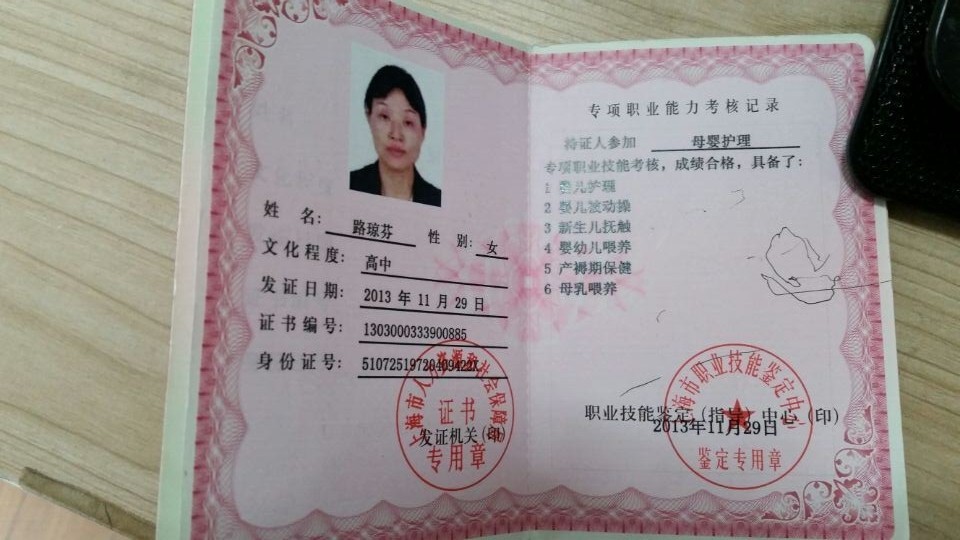 姓 名： 路琼芬 性 别： 女
文化程度： 高中
发证日期： 2013 年 11 月 29 日
证书编号： 1303000333900885
身份证号：
上海市人力资源和社会保障局
证书
发证机关（印）
专用章
专项职业能力考核记录
持证人参加 母婴护理
专项职业技能考核，成绩合格，具备了：
1 婴儿护理
2 婴儿被动操
3 新生儿抚触
4 婴幼儿喂养
5 产褥期保健
6 母乳喂养
上海市职业技能鉴定中心
职业技能鉴定（指导）中心（印）
2013年11月29日
鉴定专用章